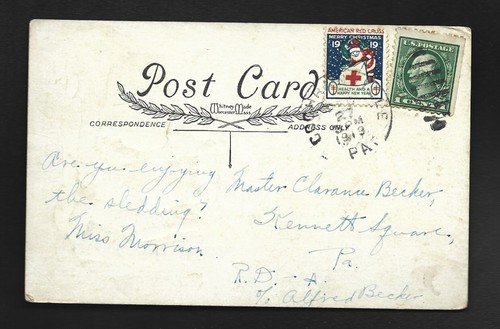 AMERICAN RED CROSS
MERRY CHRISTMAS
19 19
HEALTH AND A
HAPPY NEW YEAR
U.S. POSTAGE
1 CENT 1
Post Card
Whitney Made
Worcester Mass.
CORRESPONDENCE
ADDRESS ONLY
PM
1919
PA.
Are you enjoying
the sledding?
Miss Morrison.
Master Clarance Becker,
Kennett Square,
Pa.
R.D. - A.
c/o Alfred Becker